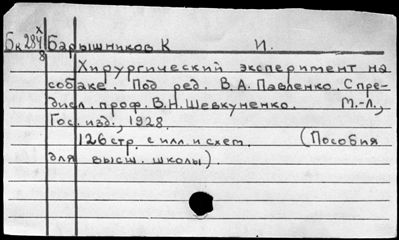 Бк 28 х/48 Барышников К И.
Хирургический эксперимент на
собаке. Под ред. В.А. Павленко. С пре-
дисл. проф. В.Н. Шевкуненко. М.-Л.,
Гос. изд., 1928.
126 стр. с илл. и схем. (Пособия
для высш. школы).